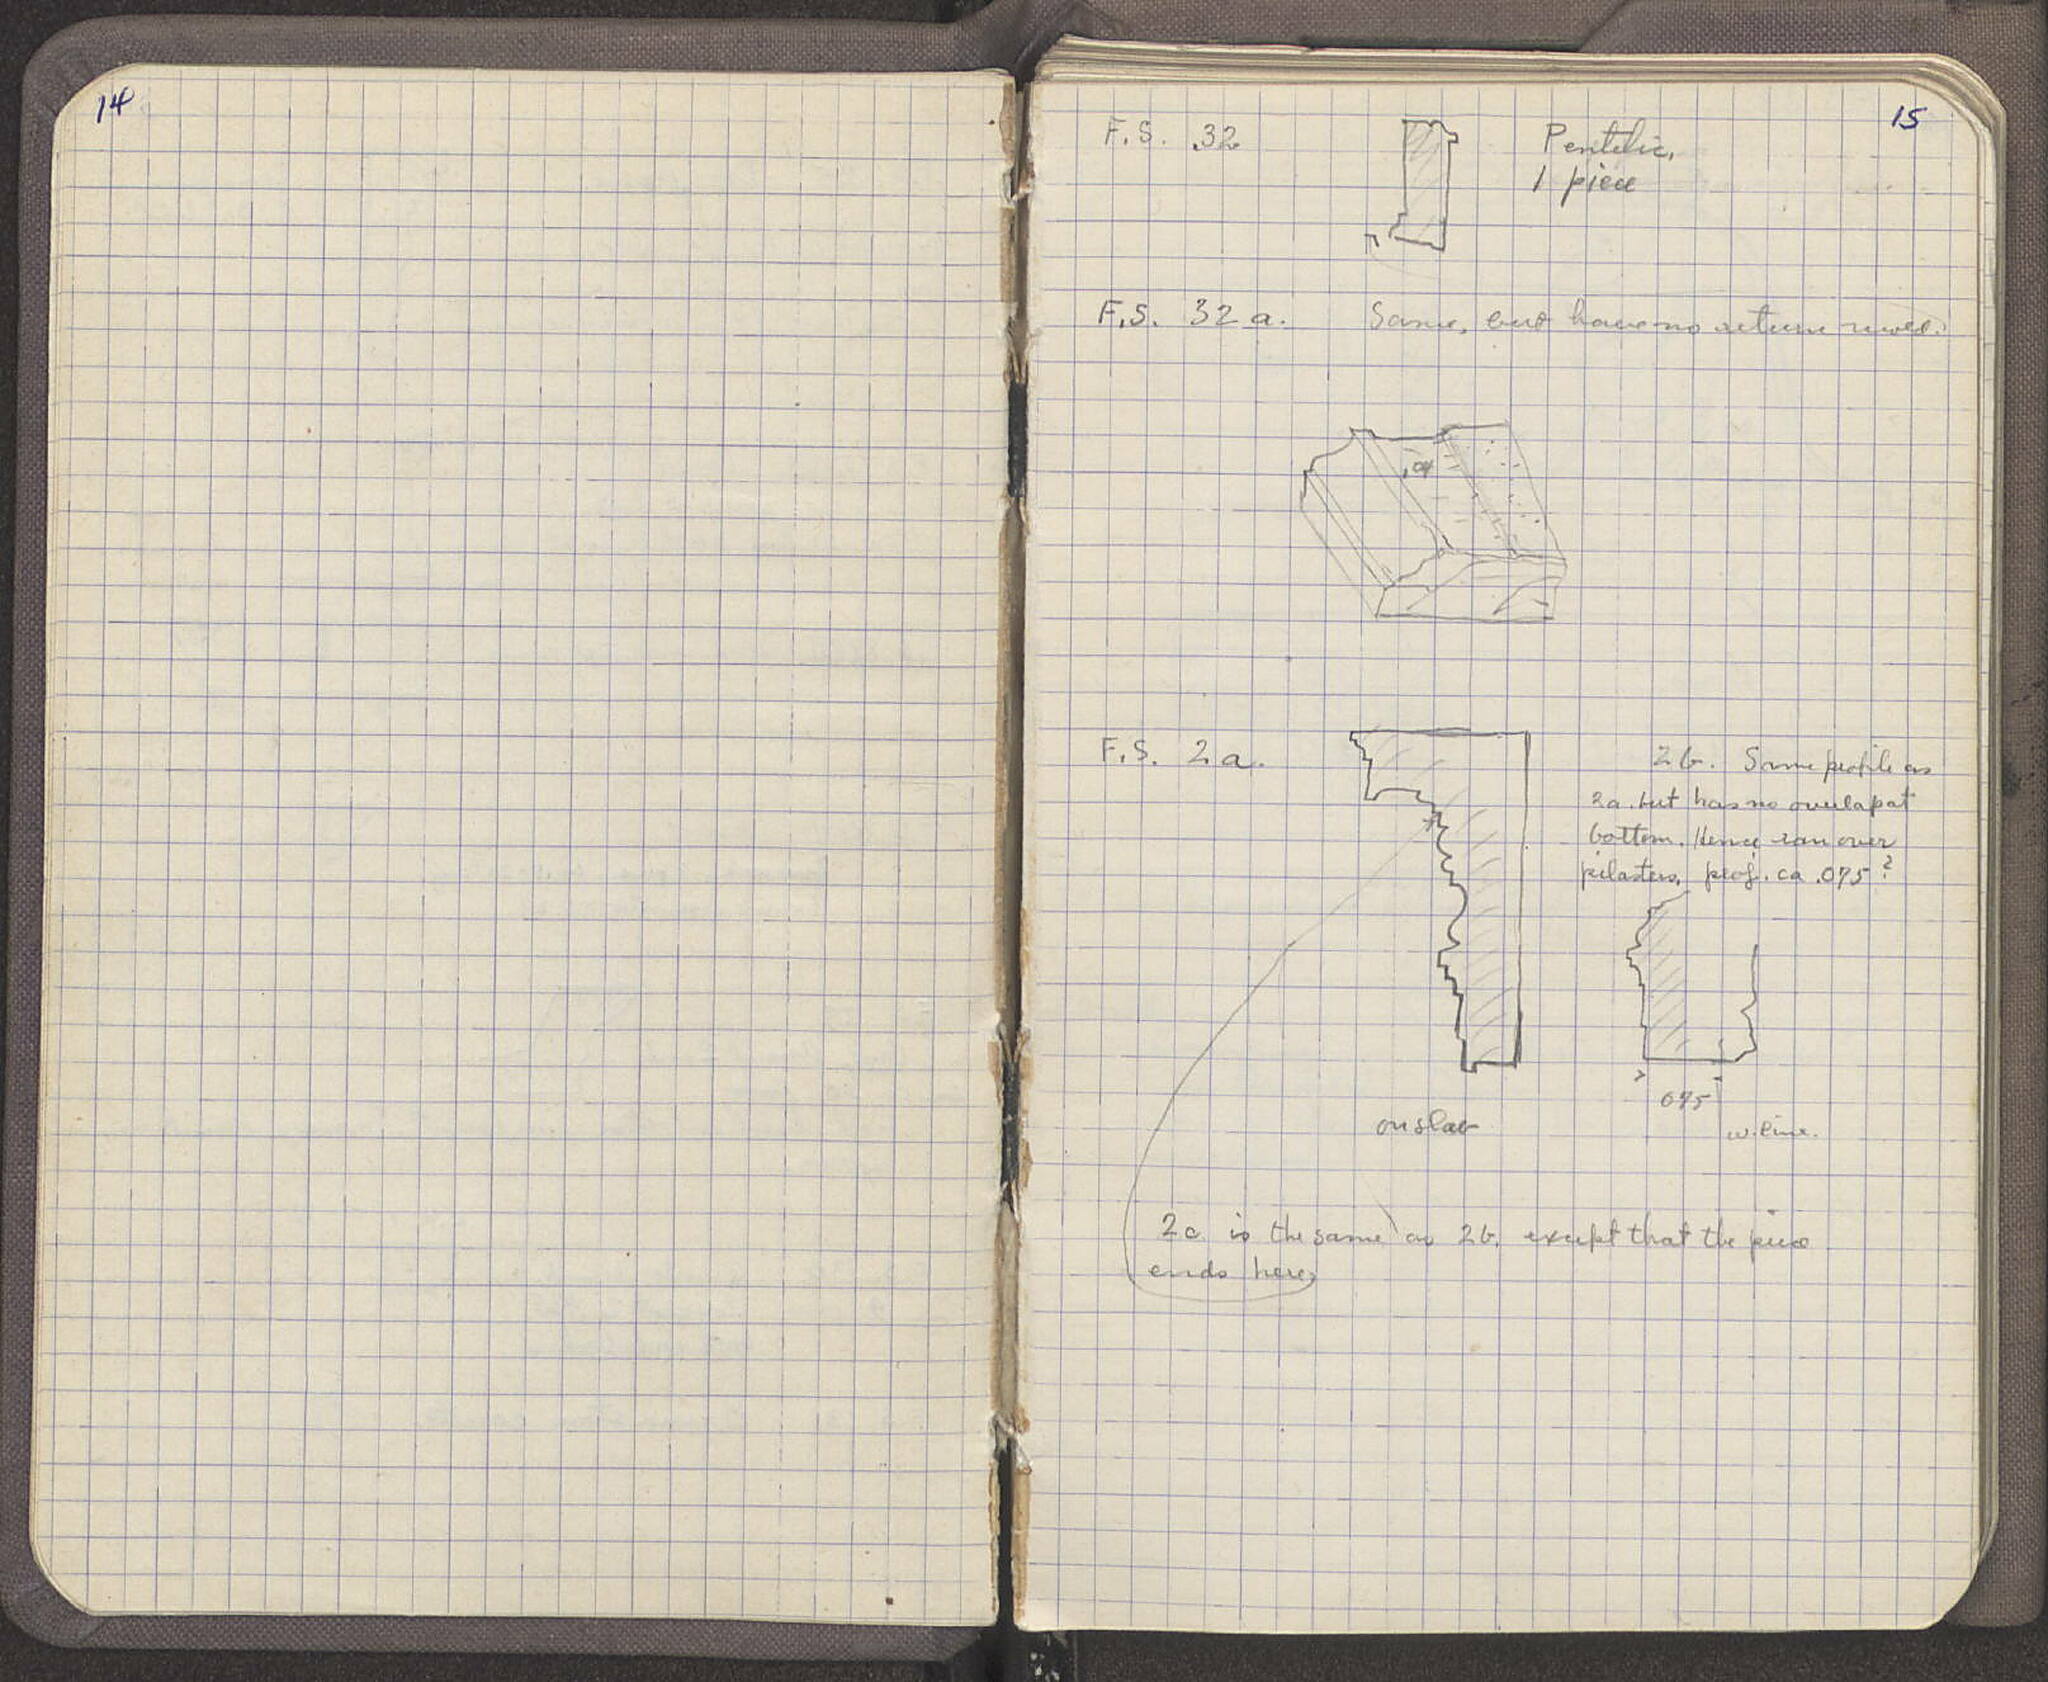 14
15
F.S. 32
Pentelic,
1 piece
F.S. 32a. Same, but have no return
.04
F.S. 2a.
2b. Same profile as
2a. but has no overlap at
bottom. Hence ran over
pilasters, proj. ca .075?
.075
on slab
2c is the same as 2b, except that the piece
ends here